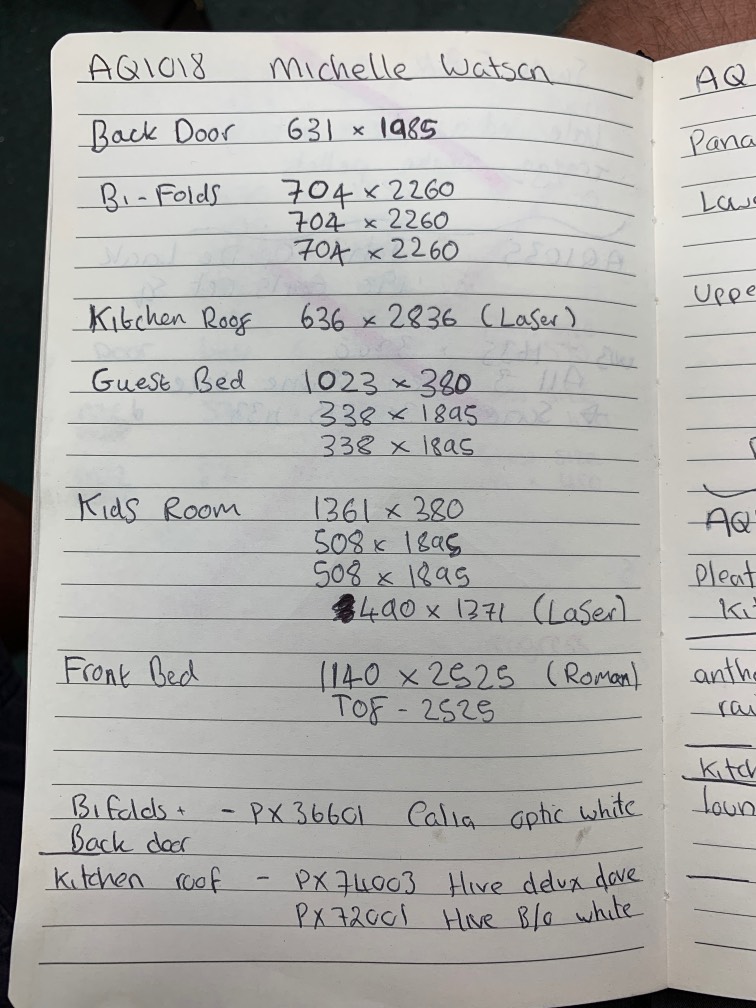 AQ1018 Michelle Watson
Back Door 631 x 1985
Bi-Folds 704 x 2260
704 x 2260
704 x 2260
Kitchen Roof 636 x 2836 (Laser)
Guest Bed 1023 x 380
338 x 1895
338 x 1895
Kids Room 1361 x 380
508 x 1895
508 x 1895
490 x 1371 (Laser)
Front Bed 1140 x 2525 (Roman)
TOF - 2525
Bifolds + - PX36601 Calia optic white
Back door
Kitchen roof - PX74003 Hive delux dove
PX72001 Hive B/O white
AQ
Pana
Law
Uppe
AQ
Pleat
Ki
anth
ra
Kitch
loun